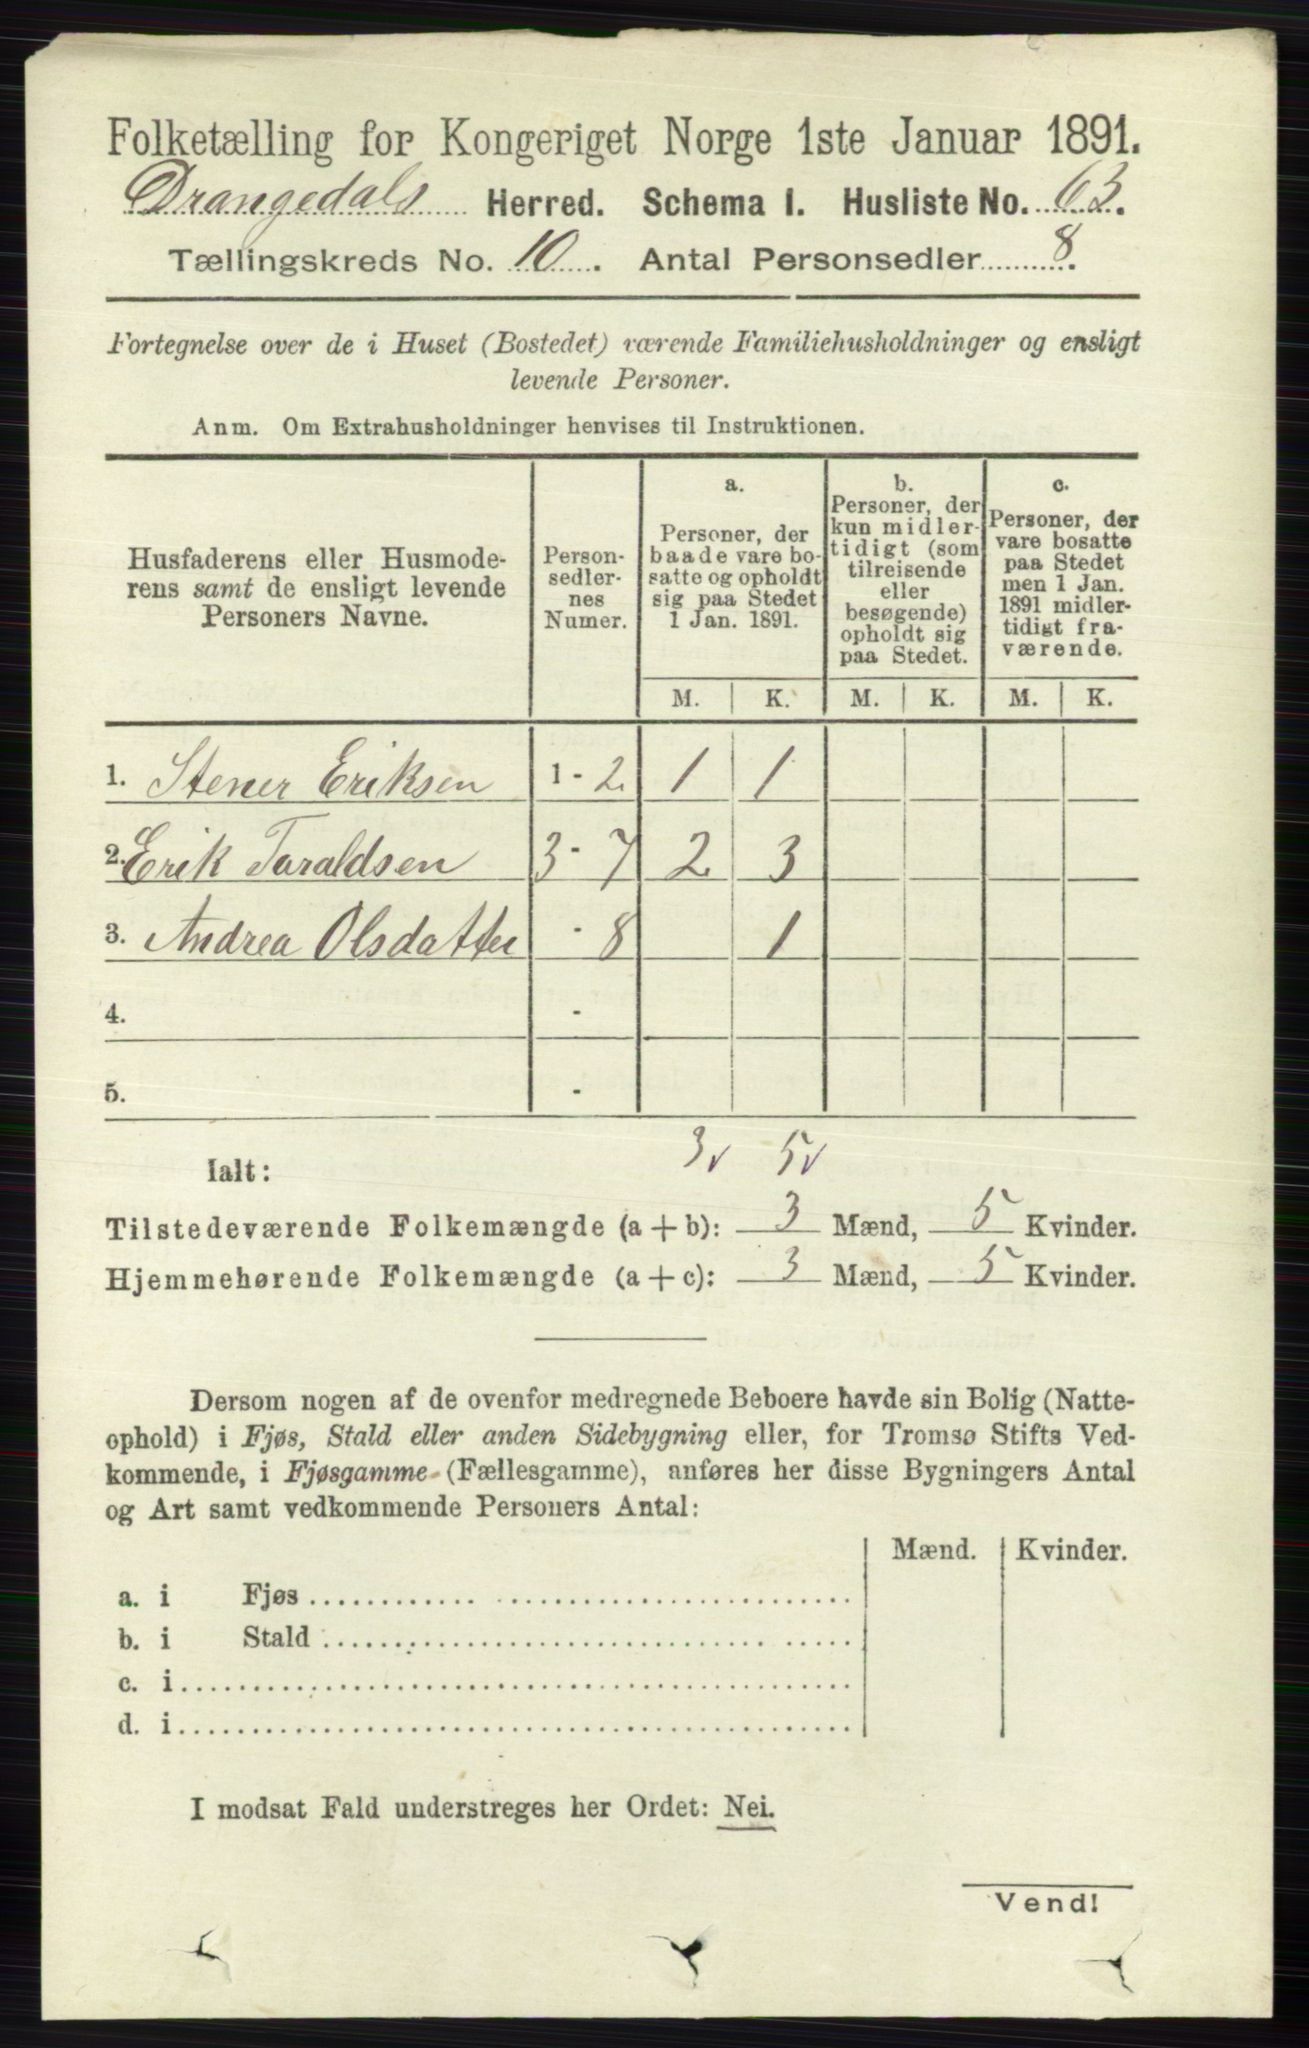 Folketælling for Kongeriget Norge 1ste Januar 1891.
Drangedals Herred. Schema I. Husliste No. 63.
Tællingskreds No. 10. Antal Personsedler 8.
Fortegnelse over de i Huset (Bostedet) værende Familiehusholdninger og ensligt
levende Personer.
Anm. Om Extrahusholdninger henvises til Instruktionen.
Husfaderens eller Husmode-
rens samt de ensligt levende
Personers Navne.
Person-
sedler-
nes
Numer.
a.
Personer, der
baade vare bo-
satte og opholdt
sig paa Stedet
1 Jan. 1891.
b.
Personer, der
kun midler-
tidigt (som
tilreisende
eller
besøgende)
opholdt sig
paa Stedet.
c.
Personer, der
vare bosatte
paa Stedet
men 1 Jan.
1891 midler-
tidigt fra-
værende.
M. K. M. K. M. K.
1. Stener Eriksen 1 - 2 1 1
2. Erik Taraldsen 3 - 7 2 3
3. Andrea Olsdatter - 8 1
4. -
5. -
Ialt: 3 v 5 v
Tilstedeværende Folkemængde (a + b): 3 Mænd, 5 Kvinder.
Hjemmehørende Folkemængde (a + c): 3 Mænd, 5 Kvinder.
Dersom nogen af de ovenfor medregnede Beboere havde sin Bolig (Natte-
ophold) i Fjøs, Stald eller anden Sidebygning eller, for Tromsø Stifts Ved-
kommende, i Fjøsgamme (Fællesgamme), anføres her disse Bygningers Antal
og Art samt vedkommende Personers Antal:
Mænd. Kvinder.
a. i Fjøs
b. i Stald
c. i
d. i
I modsat Fald understreges her Ordet: Nei.
Vend!